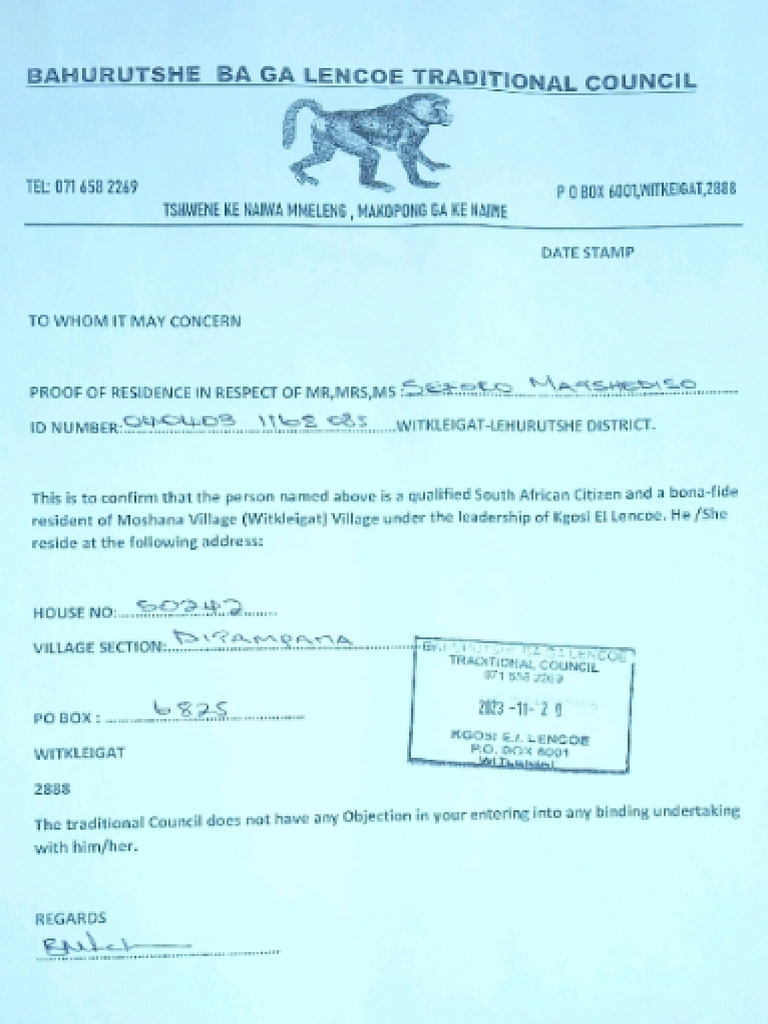 BAHURUTSHE BA GA LENCOE TRADITIONAL COUNCIL
TEL: 071 658 2269
P O BOX 6001,WITKEIGAT,2888
TSHWENE KE NAIWA MMELENG , MAKOPONG GA KE NAINE
DATE STAMP
TO WHOM IT MAY CONCERN
PROOF OF RESIDENCE IN RESPECT OF MR,MRS,MS : SEFORO MATSHEDISO
ID NUMBER: 040403 1168 085 WITKLEIGAT-LEHURUTSHE DISTRICT.
This is to confirm that the person named above is a qualified South African Citizen and a bona-fide
resident of Moshana Village (Witkleigat) Village under the leadership of Kgosi El Lencoe. He /She
reside at the following address:
HOUSE NO: 50242
VILLAGE SECTION: DIPAMPANA
BAHURUTSHE BA GA LENCOE
TRADITIONAL COUNCIL
071 658 2269
2023 -11- 20
KGOSI E.I. LENCOE
P.O. BOX 6001
PO BOX : 6825
WITKLEIGAT
2888
The traditional Council does not have any Objection in your entering into any binding undertaking
with him/her.
REGARDS